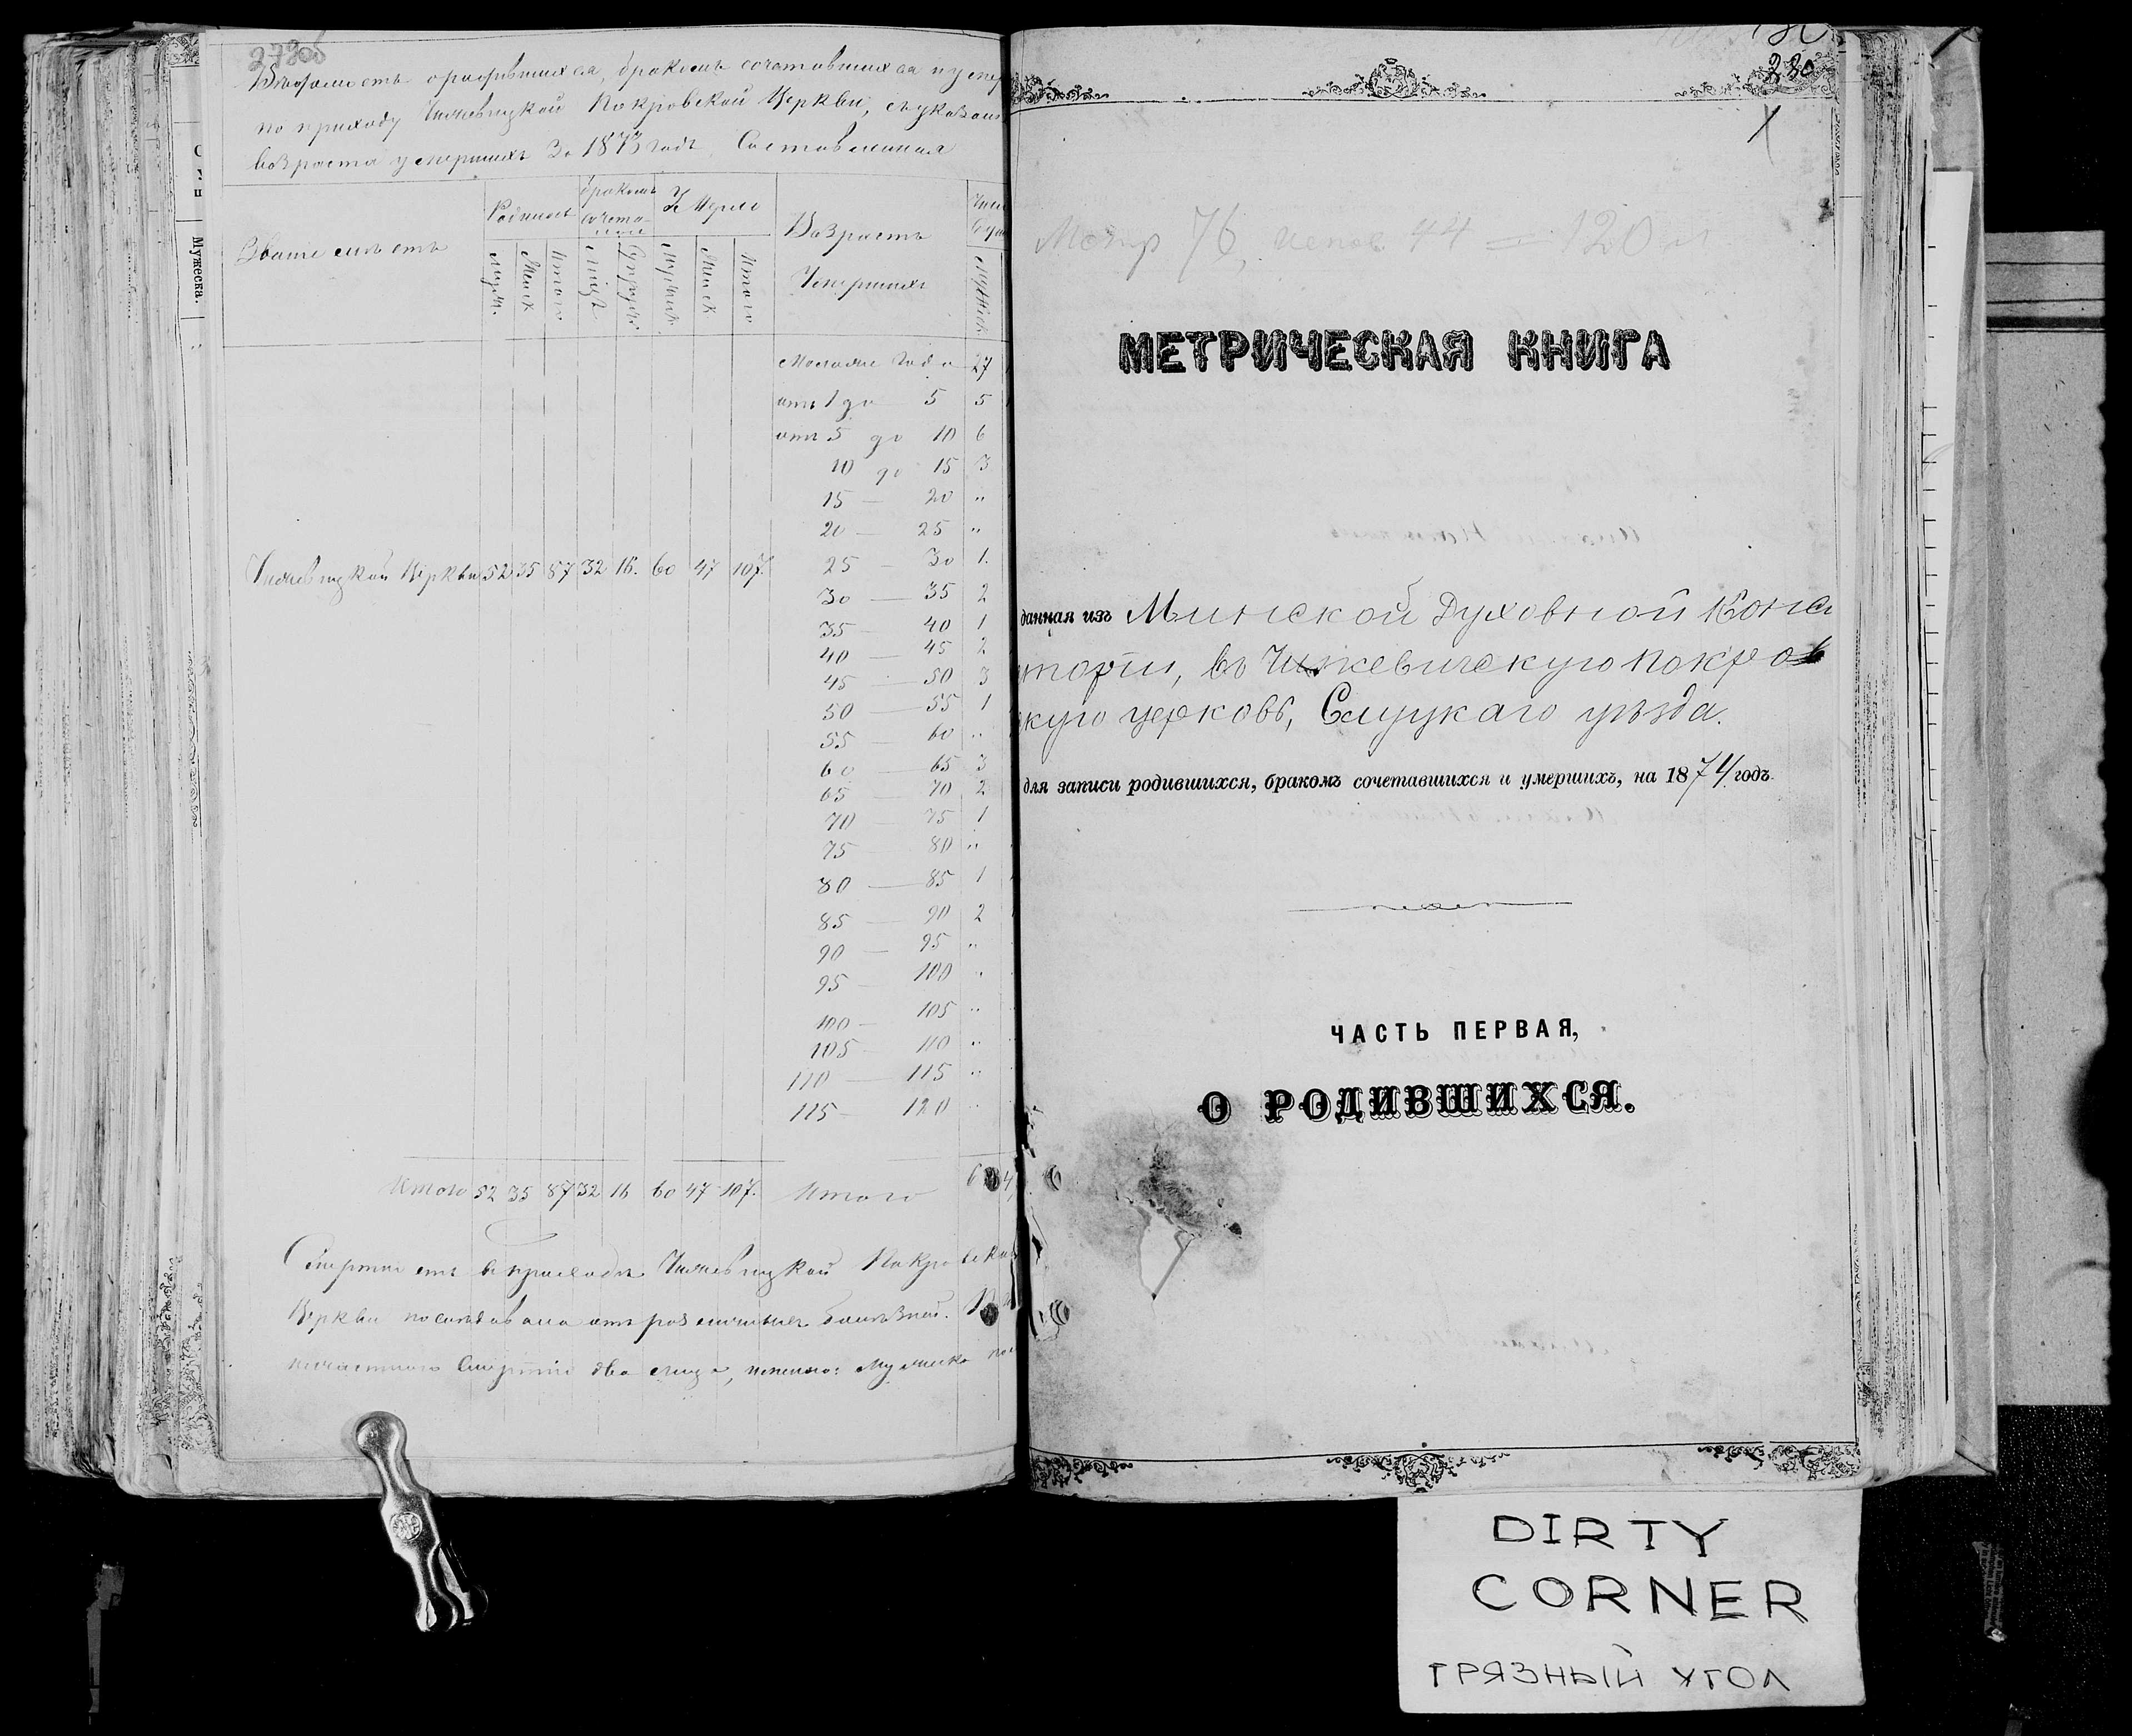 279об
Вѣдомость о родившихся, бракомъ сочетавшихся и умер
по приходу Чижевицкой Покровской Церкви, съ указан
возраста умершихъ За 1873 годъ. Составленная
Званіе
Родилось
бракомъ сочета-
Умерло
Возрастъ Умершихъ
Муж.
Женск
Итого
Лицъ
Супруж.
Мужск
Женск
Итого
Мужск
Мужеска.
Моложе года 27
отъ 1 до 5 5
отъ 5 до 10 6
10 до 15 3
15 — 20 "
20 — 25 "
Чижевицкой Церкви 52 35 87 32 16. 60 47 107.
25 — 30 1.
30 — 35 2
35 — 40 1
40 — 45 2
45 — 50 3
50 — 55 1
55 — 60 "
60 — 65 3
65 — 70 2
70 — 75 1
75 — 80 "
80 — 85 1
85 — 90 2
90 — 95 "
95 — 100 "
100 — 105 "
105 — 110 "
110 — 115 "
115 — 120 "
Итого 52 35 87 32 16 60 47 107. Итого
Смертность въ приходѣ Чижевицкой Покровской
Церкви последовала отъ различныхъ болѣзней.
несчастною Смертію два лица, именно: Мужска
280
Метр 76, испов 44 = 120 л
МЕТРИЧЕСКАЯ КНИГА
данная изъ Минской Духовной Конси
торіи, въ Чижевичскую Покров
скую церковь, Слуцкаго уѣзда.
для записи родившихся, бракомъ сочетавшихся и умершихъ, на 1874 годъ.
ЧАСТЬ ПЕРВАЯ,
О РОДИВШИХСЯ.
DIRTY
CORNER
ГРЯЗНЫЙ УГОЛ